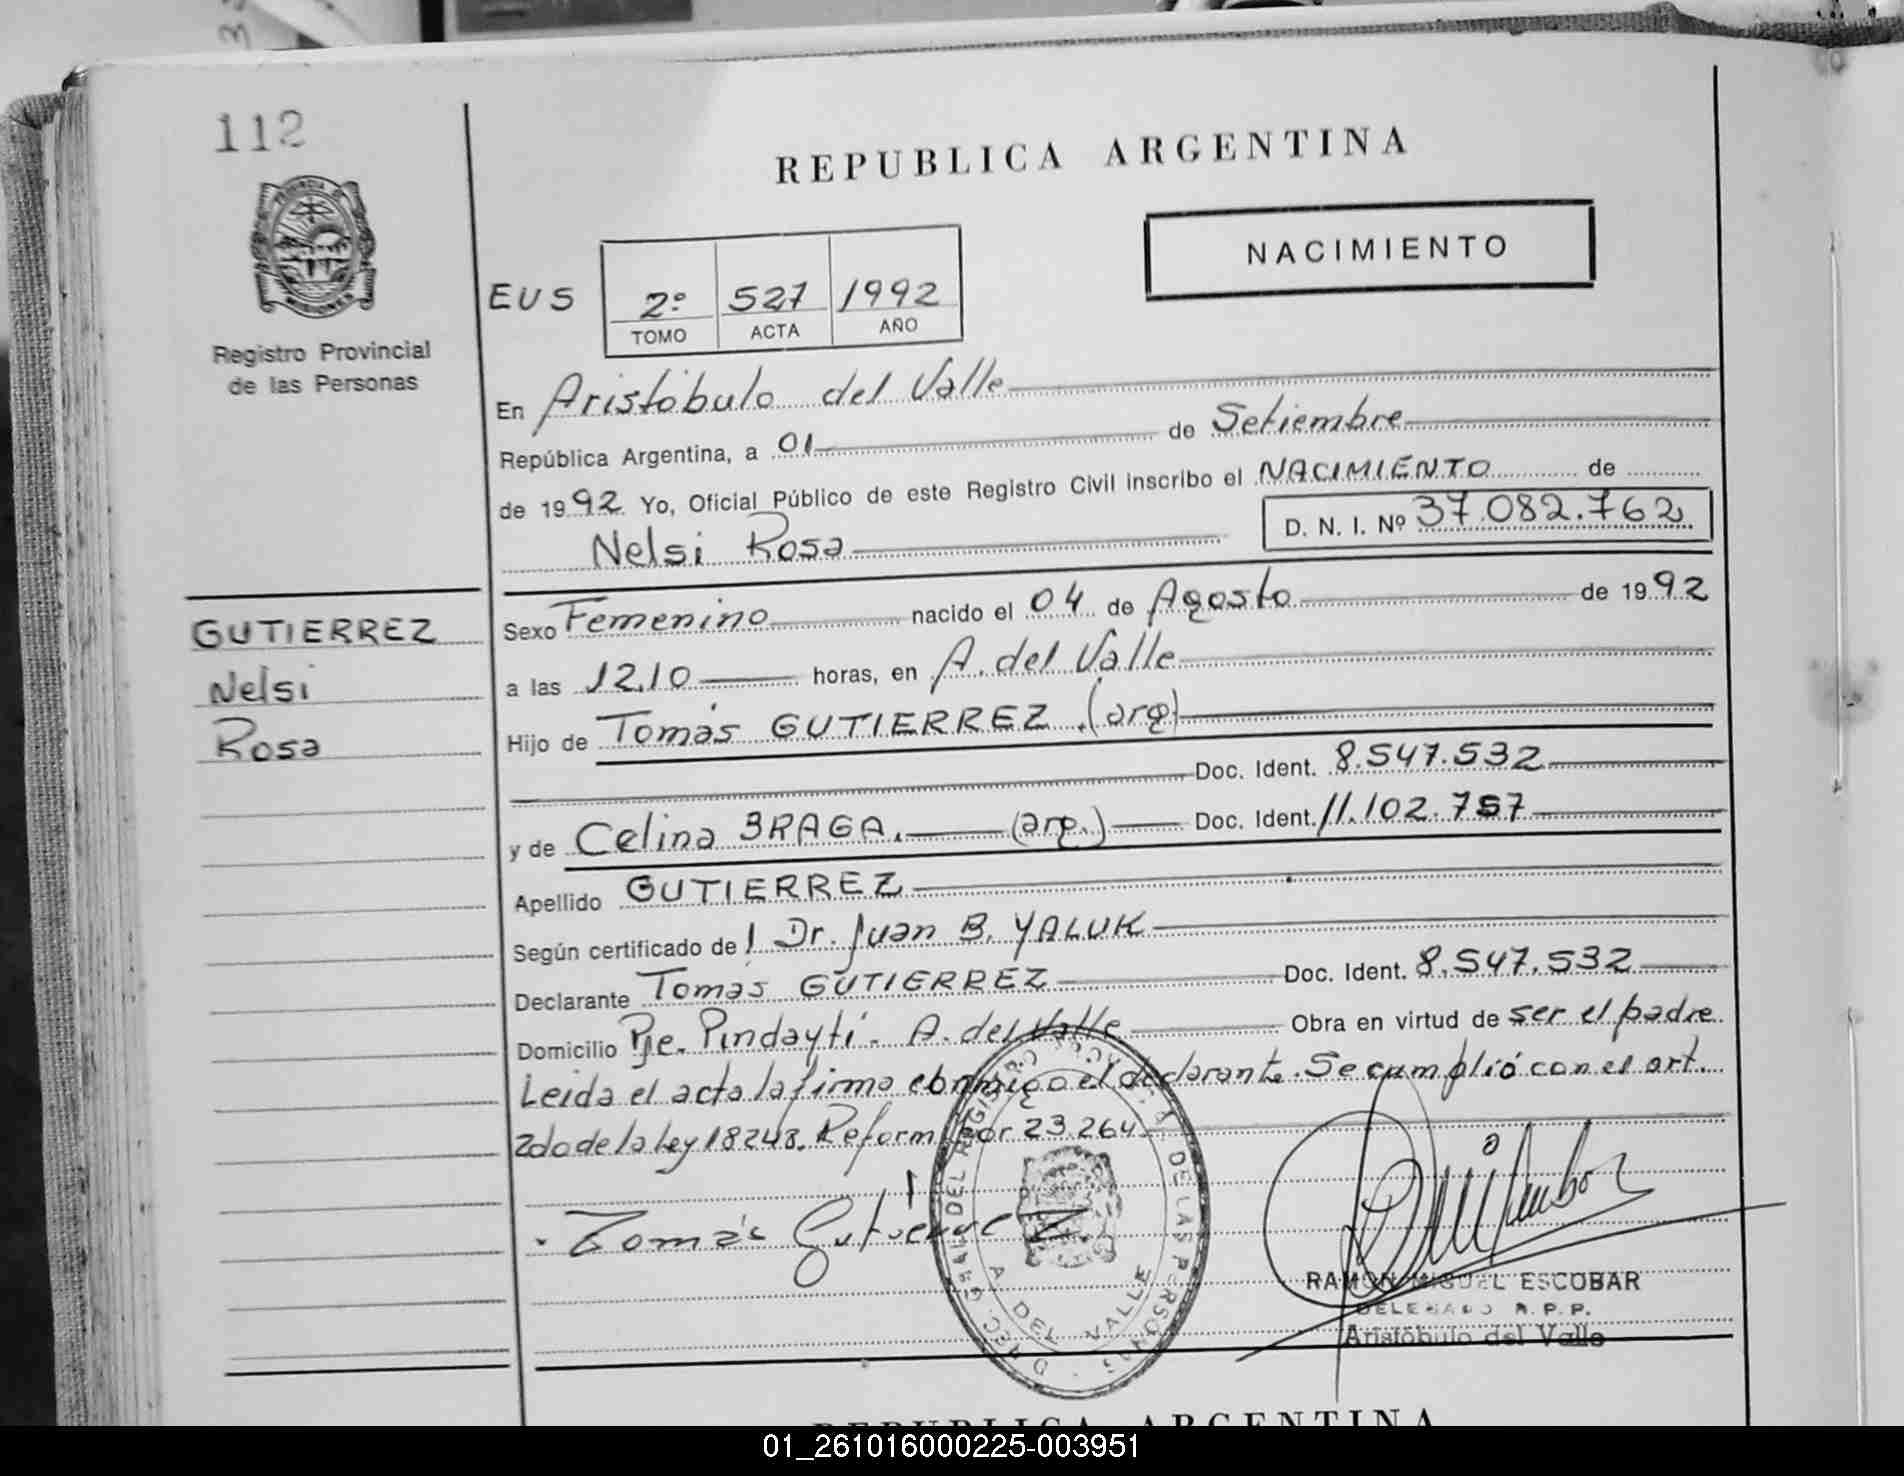 112
REPUBLICA ARGENTINA
NACIMIENTO
PROVINCIA DE MISIONES
Registro Provincial
de las Personas
EUS
2º 527 1992
TOMO ACTA AÑO
En Aristóbulo del Valle
República Argentina, a 01 de Setiembre
de 1992 Yo, Oficial Público de este Registro Civil inscribo el NACIMIENTO de
Nelsi Rosa D. N. I. Nº 37.082.762
GUTIERREZ
Nelsi
Rosa
Sexo Femenino nacido el 04 de Agosto de 1992
a las 12.10 horas, en A. del Valle
Hijo de Tomás GUTIERREZ (arg)
Doc. Ident. 8.547.532
y de Celina BRAGA. (arg.) Doc. Ident. 11.102.757
Apellido GUTIERREZ
Según certificado de l Dr. Juan B. YALUK
Declarante Tomas GUTIERREZ Doc. Ident. 8.547.532
Domicilio Pje. Pindaytí - A. del Valle Obra en virtud de ser el padre
Leida el acta la firma conmigo el declarante. Se cumplió con el art.
2do de la ley 18248. Reform por 23.264
Tomás Gutierrez
RAMON MIGUEL ESCOBAR
DELEGADO R.P.P.
Aristóbulo del Valle
DEL REGISTRO PROVINCIAL DE LAS PERSONAS
A DEL VALLE
REPUBLICA ARGENTINA
01_261016000225-003951